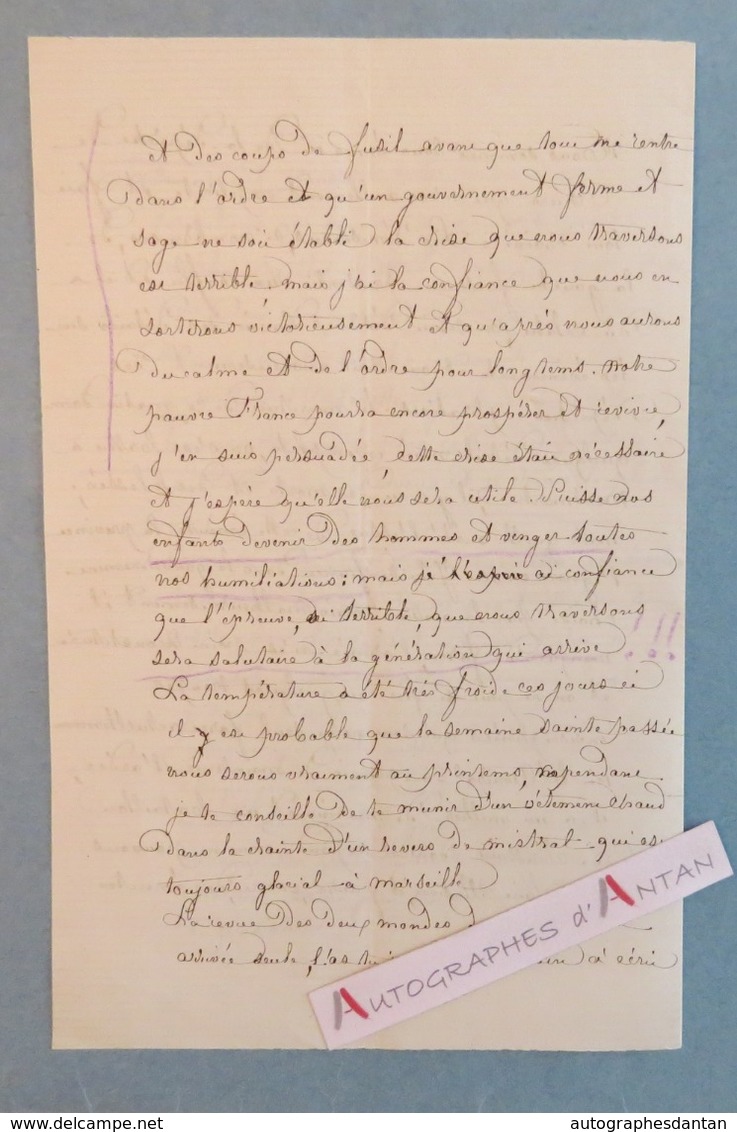 et des coups de fusil avant que tout ne rentre
dans l'ordre et qu'un gouvernement ferme et
sage ne soit établi la crise que nous traversons
est terrible mais j'ai la confiance que nous en
sortirons victorieusement et qu'après nous aurons
du calme et de l'ordre pour longtems. Notre
pauvre France pourra encore prospérer et revivre,
j'en suis persuadée, cette crise était nécessaire
et j'espère qu'elle nous sera utile. Puisse nos
enfants devenir des hommes et venger toutes
nos humiliations; mais j'ai confiance
que l'épreuve, si terrible, que nous traversons
sera salutaire à la génération qui arrive !!!
La température a été très froide ces jours ci
il est probable que la semaine sainte passée
nous serons vraiment au printems, cependant
je te conseille de te munir d'un vêtement chaud
dans la crainte d'un revers de mistral qui est
toujours glacial à Marseille
La revue des deux mondes
arrivée seule, l'as tu à écrire
AUTOGRAPHES d'ANTAN
www.delcampe.net
autographesdantan